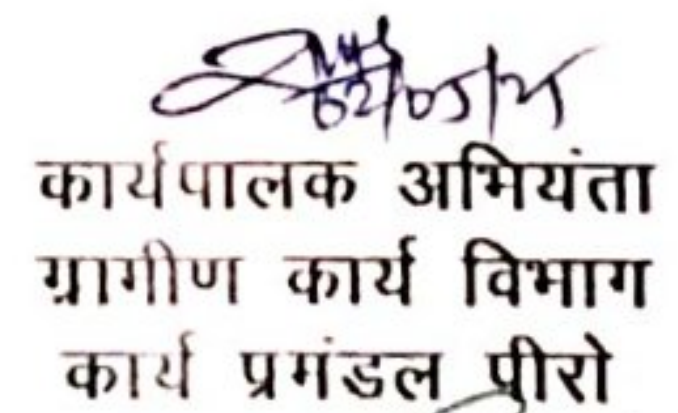 02/05/25
कार्यपालक अभियंता
ग्रागीण कार्य विभाग
कार्य प्रमंडल पीरो